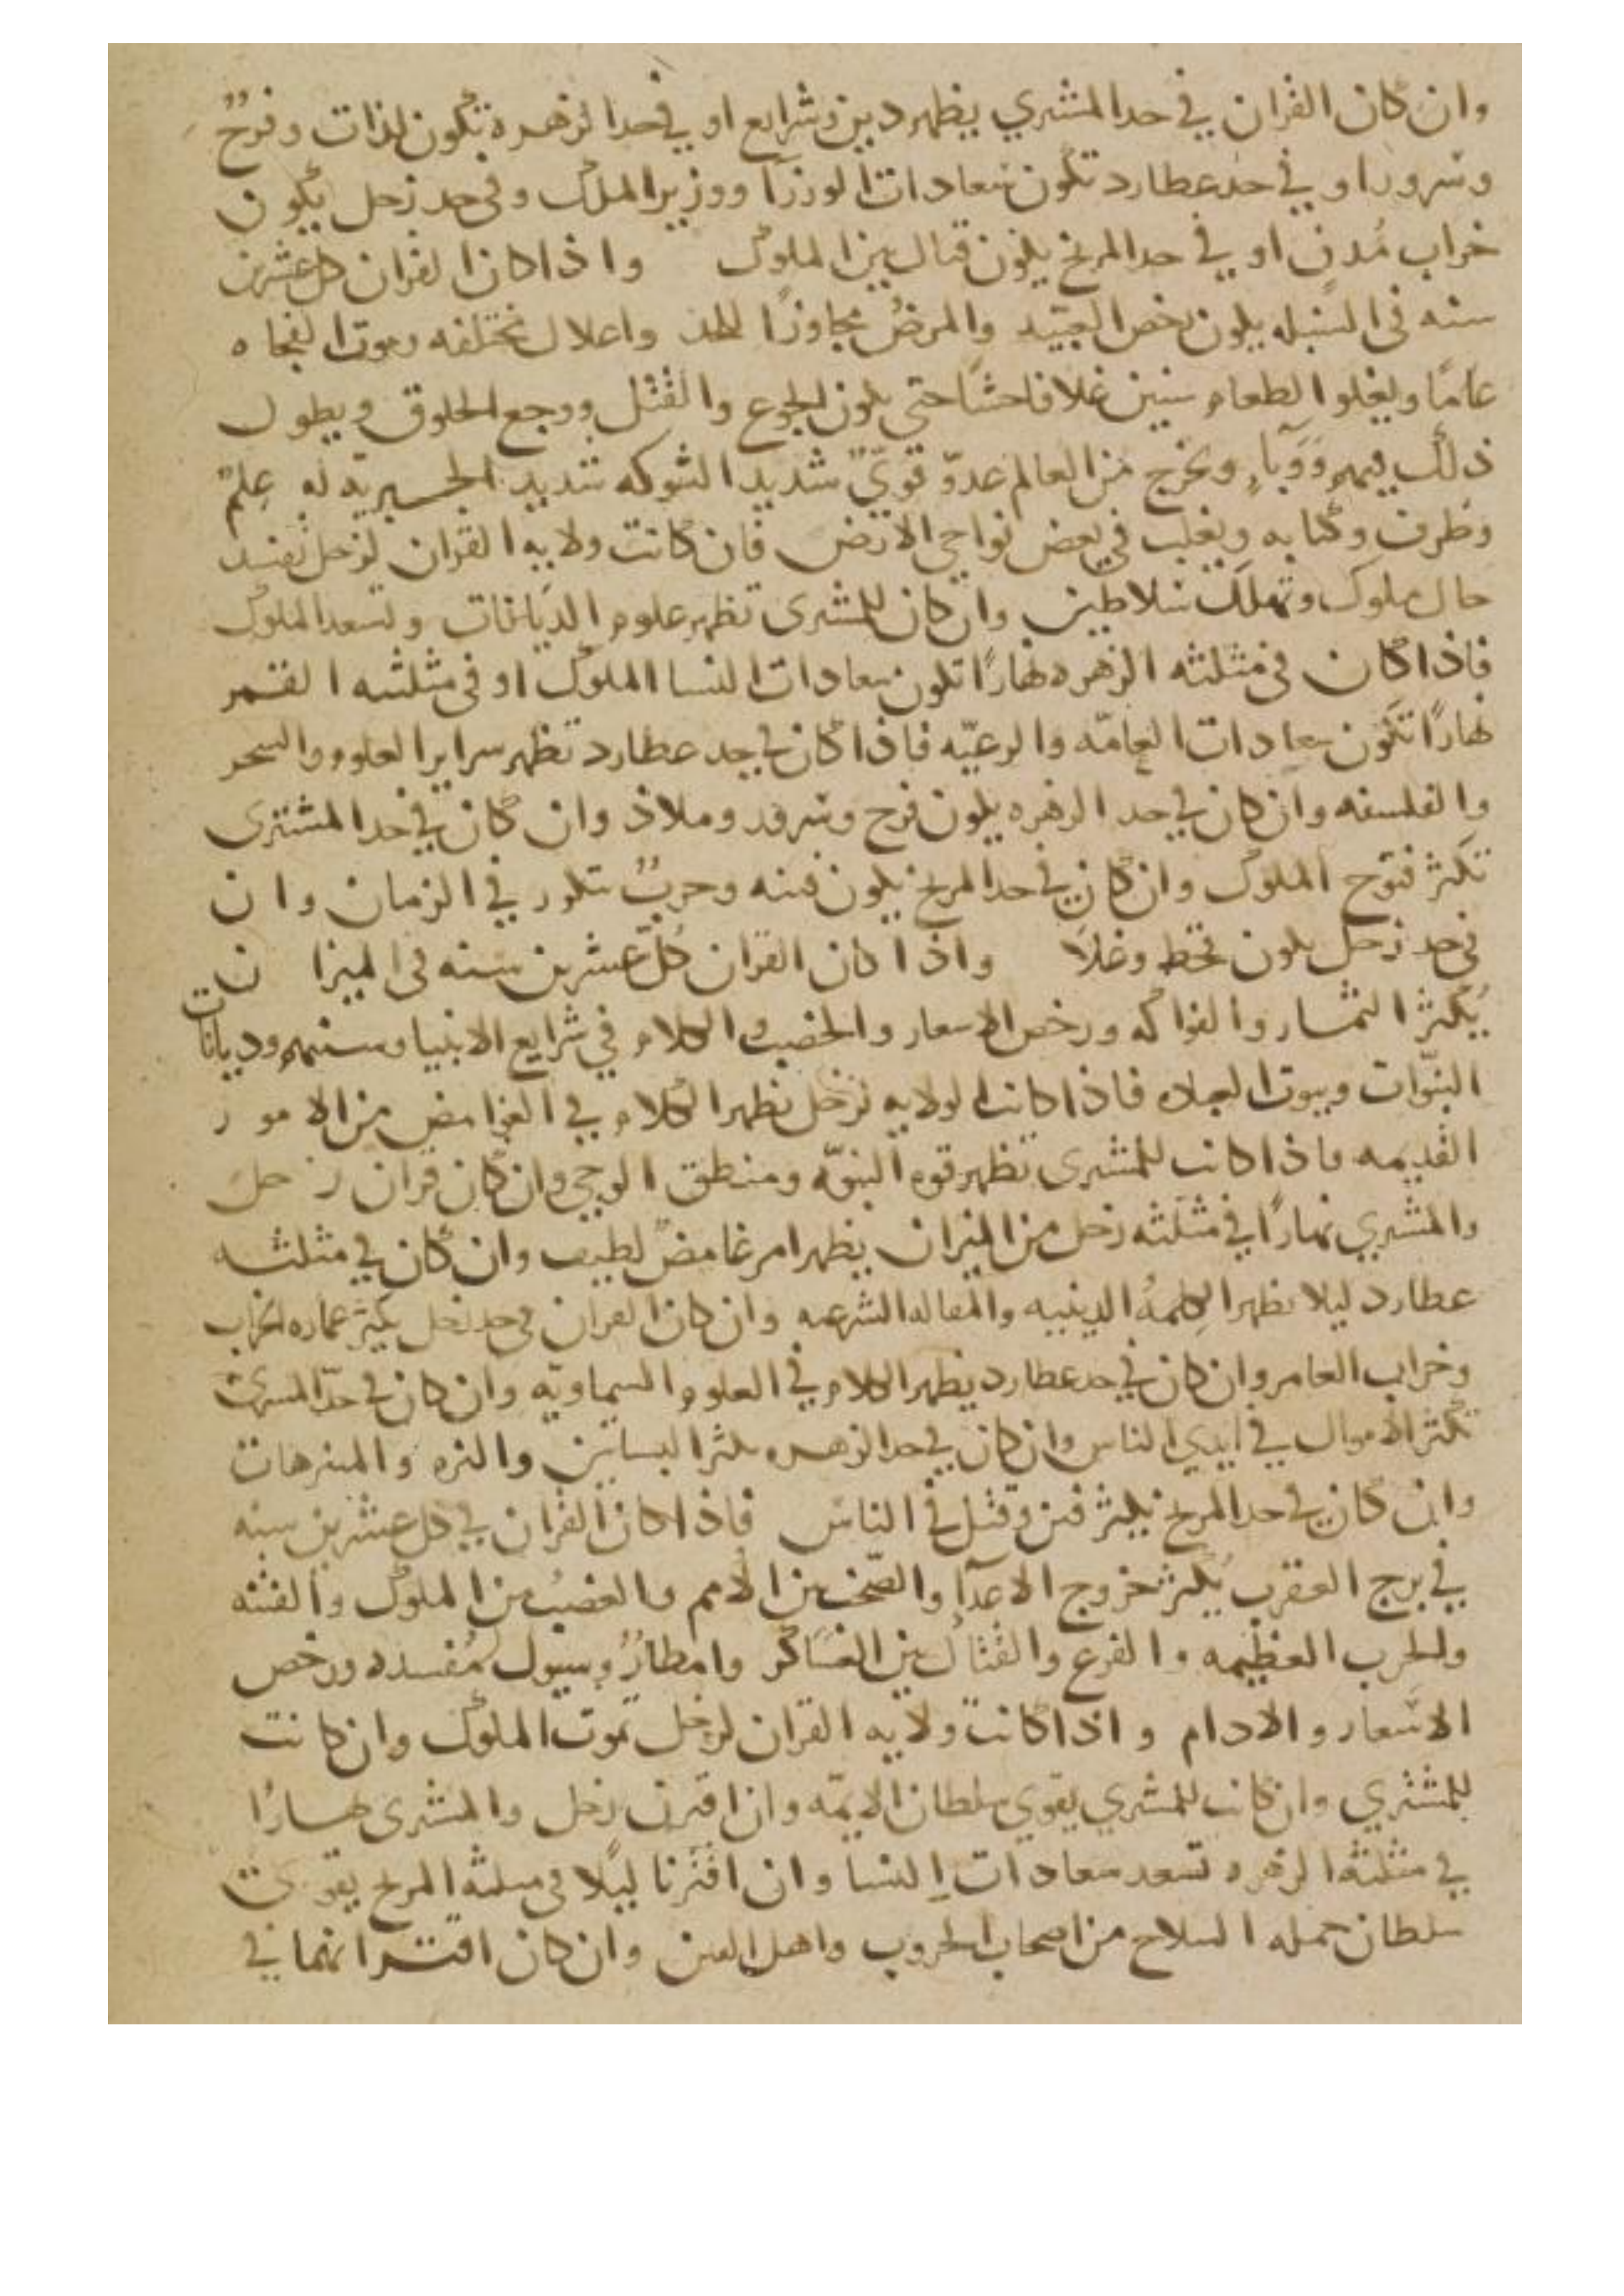 وان كان القران في حد المشتري يظهر دين وشرايع او في حد الزهره تكون لذات وفرحٌ
وسرور او في حد عطارد تكون سعادات الوزرآ ووزير الملك وفى حد زحل يكون
خراب مُدن او في حد المريخ يكون قتال بين الملوك واذا كان القران كل عشرين
سنه فى السنبله يكون رخص العبيد والمرضُ مجاوزًا للحد واعلال مختلفه وموت الفجاه
عامًا ويغلو الطعام سنين غلا فاحشًا حتى يكون الجوع والقتل ووجع الحلوق ويطول
ذلك فيهم وَوَبَآءٍ ويخرج من العالم عدوّ قويّ شديد الشوكه شديد الجبريه له علمٌ
وظرف وكتابه ويغلب في بعض نواحي الارض فان كانت ولايه القران لزحل تفسد
حال ملوك وتهلك سلاطين وان كان للمشترى تظهر علوم الديانات وتسعد الملوك
فاذا كان فى مثلثه الزهره نهارًا تكون سعادات النسا الملوك او فى مثلثه القمر
نهارًا تكون سعادات العامّه والرعيّه فاذا كان في حد عطارد تظهر سراير العلوم والسحر
والفلسفه وان كان في حد الزهره يكون فرح وسرور وملاذ وان كان في حد المشترى
تكثر فتوح الملوك وان كان في حد المريخ يكون فتنه وحربٌ تكون في الزمان وان
فى حد زحل يكون قحط وغلاً واذا كان القران كلّ عشرين سنه فى الميزان
يُكثر الثمار والفواكه ورخص الاسعار والخصب والكلام في شرايع الانبيا وسننهم وديانات
النبوّات وبيوت العباده فاذا كانت الولايه لزحل تظهر الكلام في الغوامض من الامور
القديمه فاذا كانت للمشترى تظهر قوه النبوّه ومنطق الوحي وان كان قران زحل
والمشتري نهارًا في مثلثه زحل من الميزان يظهر امر غامضٌ لطيف وان كان في مثلثه
عطارد ليلا تظهر الكلمهُ الدينيه والمقاله الشرعيه وان كان القران فى حد زحل يكثر عماره الخراب
وخراب العامر وان كان في حد عطارد يظهر الكلام في العلوم السماويّه وان كان في حدّ المشترى
تكثر الاموال في ايدي الناس وان كان في حد الزهره يكثر البساتين والنزه والمنزهات
وان كان في حد المريخ يكثر فتن وقتل في الناس فاذا كان القران في كل عشرين سنه
في برج العقرب يُكثر خروج الاعدآء والصّخب بين الامم والغضبُ بين الملوك والفتنه
والحرب العظيمه والفزع والقتال بين العساكر وامطارٌ وسيول مُفسده ورخص
الاسعار والادام واذا كانت ولايه القران لزحل تموت الملوك وان كانت
للمشتري وان كانت للمشتري يقوي سلطان الايمّه وان اقترن زحل والمشترى نهارًا
في مثلثه الزهره تسعد سعادات النسا وان اقترنا ليلًا فى مثلثه المريخ يقوى
سلطان حمله السلاح من اصحاب الحروب واهل الفتن وان كان اقترانهما في